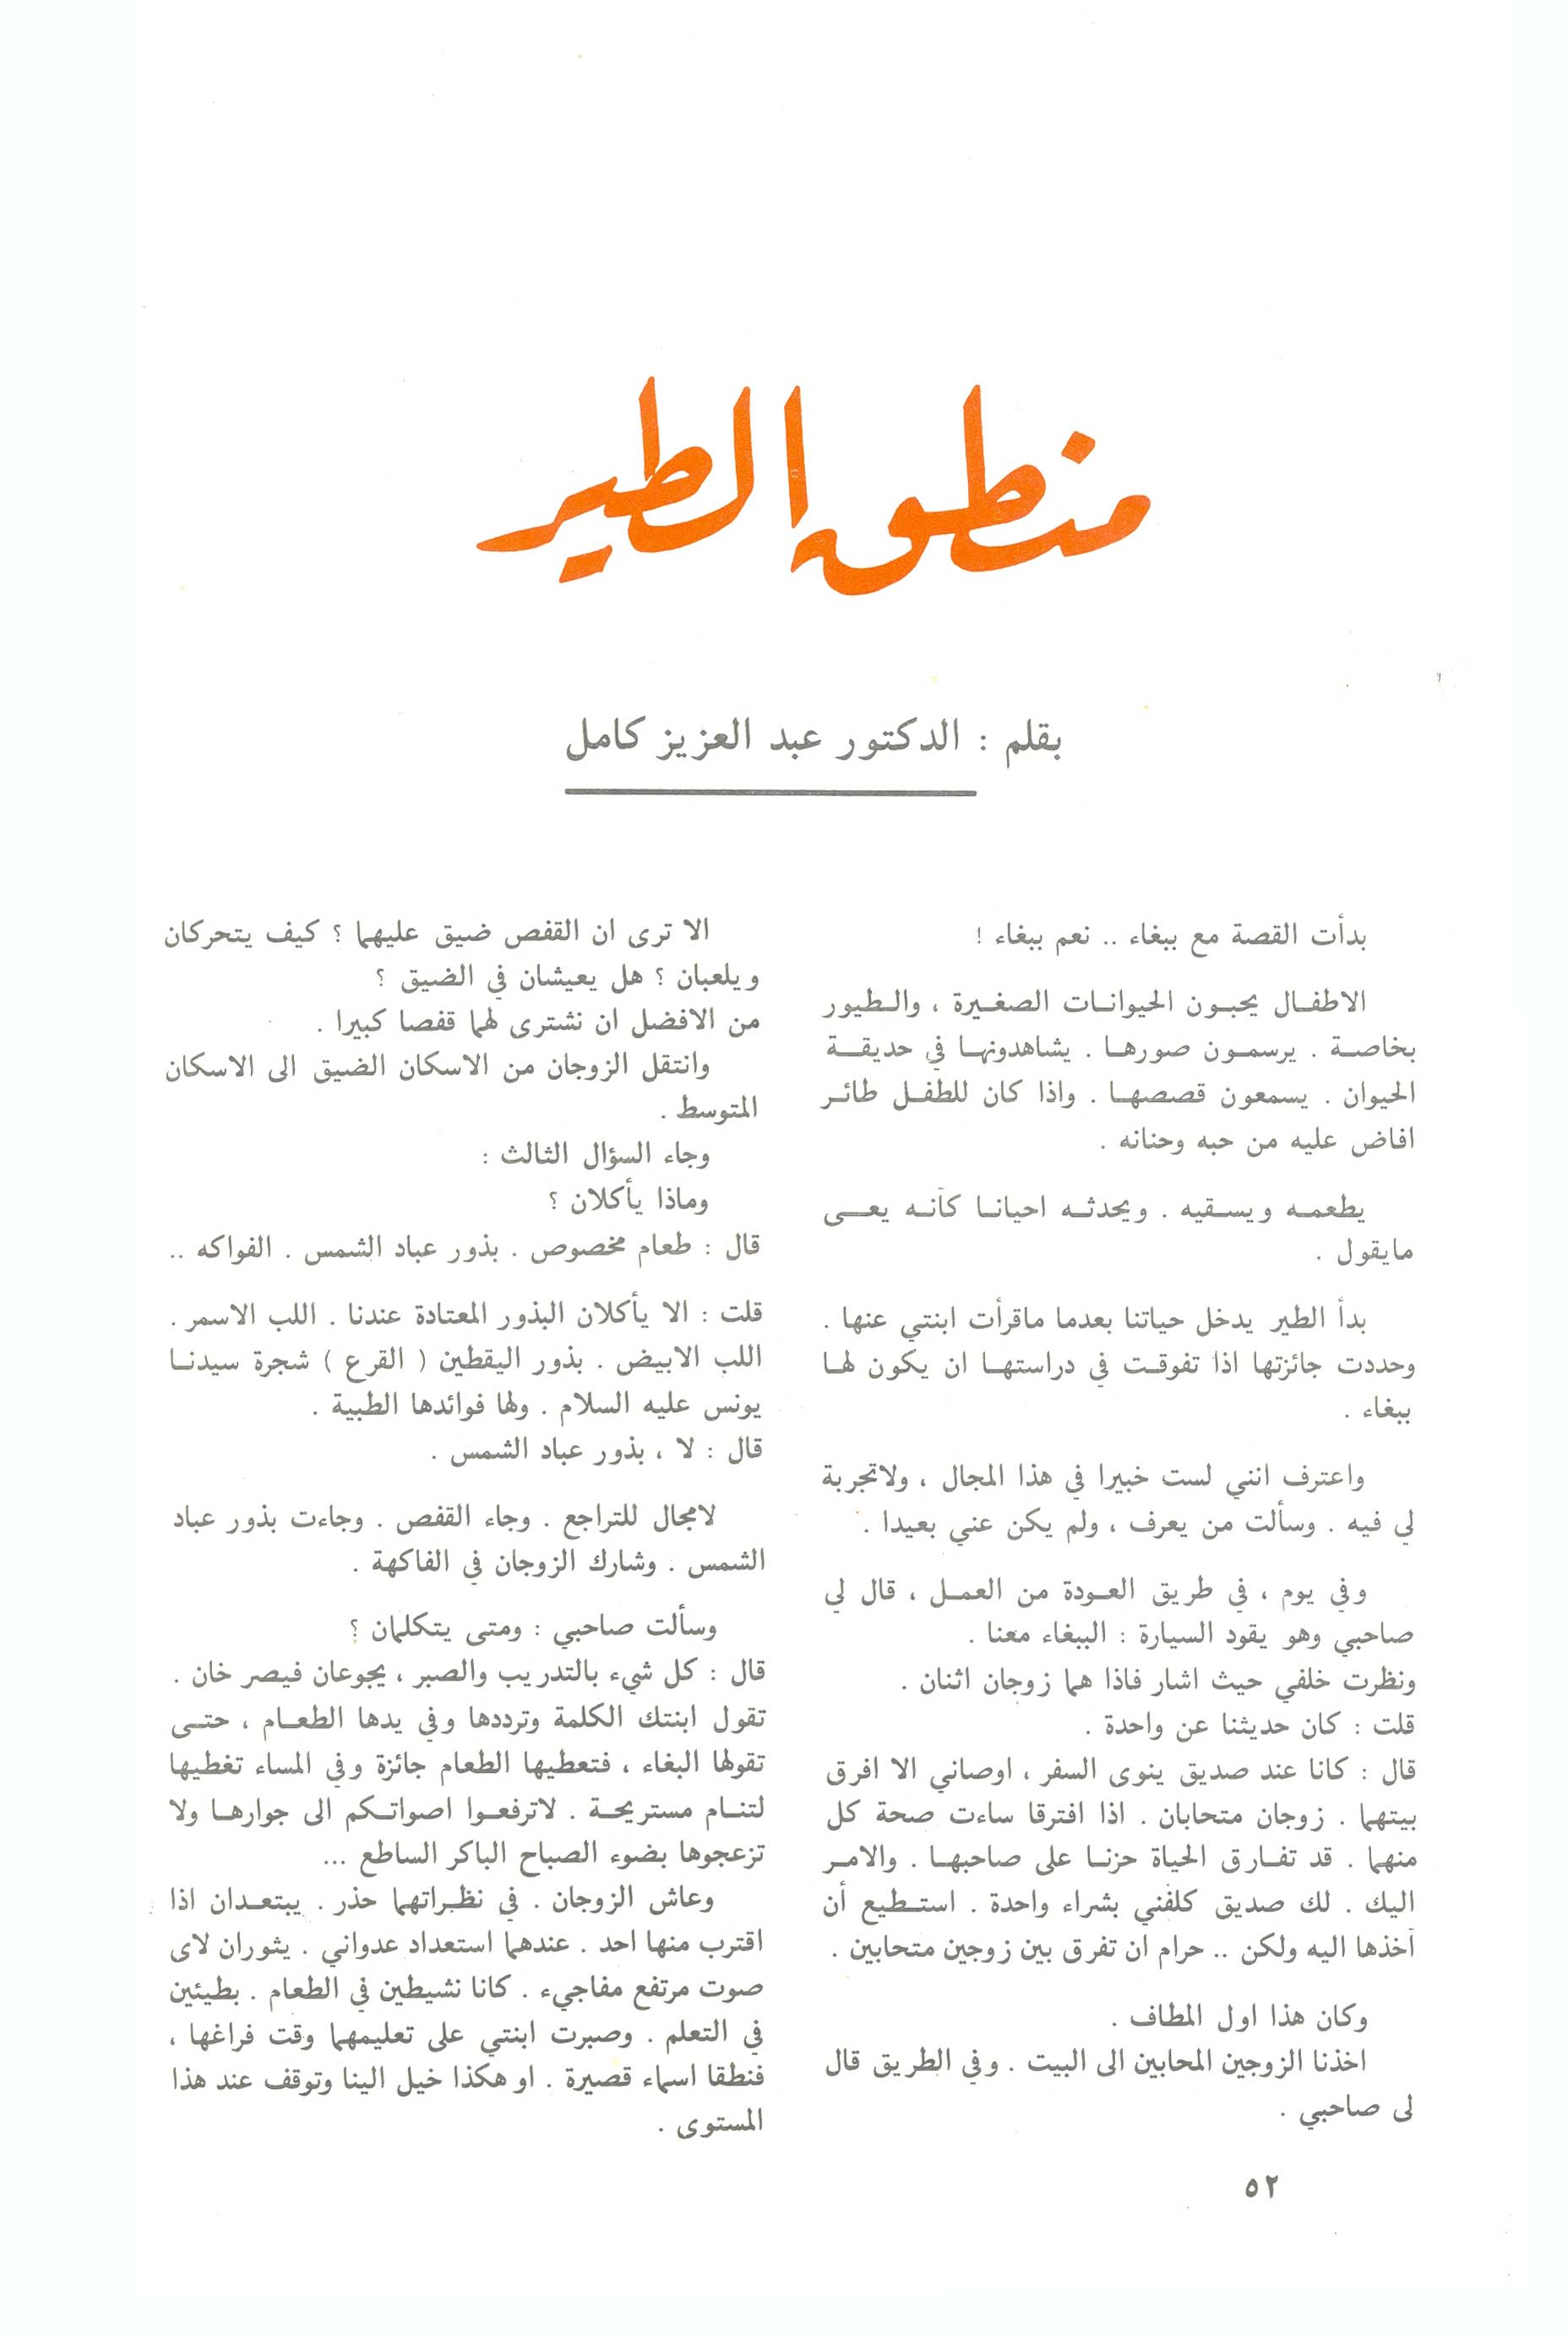 منطق الطير
بقلم : الدكتور عبد العزيز كامل
بدأت القصة مع ببغاء .. نعم ببغاء !
الاطفال يحبون الحيوانات الصغيرة ، والطيور
بخاصة . يرسمون صورها . يشاهدونها في حديقة
الحيوان . يسمعون قصصها . واذا كان للطفل طائر
افاض عليه من حبه وحنانه .
يطعمه ويسقيه . ويحدثه احيانا كأنه يعى
مايقول .
بدأ الطير يدخل حياتنا بعدما ماقرأت ابنتي عنها .
وحددت جائزتها اذا تفوقت في دراستها ان يكون لها
ببغاء .
واعترف انني لست خبيرا في هذا المجال ، ولاتجربة
لي فيه . وسألت من يعرف ، ولم يكن عني بعيدا .
وفي يوم ، في طريق العودة من العمل ، قال لي
صاحبي وهو يقود السيارة : الببغاء معنا .
ونظرت خلفي حيث اشار فاذا هما زوجان اثنان .
قلت : كان حديثنا عن واحدة .
قال : كانا عند صديق ينوى السفر ، اوصاني الا افرق
بيتهما . زوجان متحابان . اذا افترقا ساءت صحة كل
منهما . قد تفارق الحياة حزنا على صاحبها . والامر
اليك . لك صديق كلفني بشراء واحدة . استطيع أن
آخذها اليه ولكن .. حرام ان تفرق بين زوجين متحابين .
وكان هذا اول المطاف .
اخذنا الزوجين المحابين الى البيت . وفي الطريق قال
لى صاحبي .
الا ترى ان القفص ضيق عليهما ؟ كيف يتحركان
ويلعبان ؟ هل يعيشان في الضيق ؟
من الافضل ان نشترى لهما قفصا كبيرا .
وانتقل الزوجان من الاسكان الضيق الى الاسكان
المتوسط .
وجاء السؤال الثالث :
وماذا يأكلان ؟
قال : طعام مخصوص . بذور عباد الشمس . الفواكه ..
قلت : الا يأكلان البذور المعتادة عندنا . اللب الاسمر .
اللب الابيض . بذور اليقطين ( القرع ) شجرة سيدنا
يونس عليه السلام . ولها فوائدها الطبية .
قال : لا ، بذور عباد الشمس .
لامجال للتراجع . وجاء القفص . وجاءت بذور عباد
الشمس . وشارك الزوجان في الفاكهة .
وسألت صاحبي : ومتى يتكلمان ؟
قال : كل شيء بالتدريب والصبر ، يجوعان فيصر خان .
تقول ابنتك الكلمة وترددها وفي يدها الطعام ، حتى
تقولها البغاء ، فتعطيها الطعام جائزة وفي المساء تغطيها
لتنام مستريحة . لاترفعوا اصواتكم الى جوارها ولا
تزعجوها بضوء الصباح الباكر الساطع ...
وعاش الزوجان . في نظراتهما حذر . يبتعدان اذا
اقترب منها احد . عندهما استعداد عدواني . يثوران لاى
صوت مرتفع مفاجيء . كانا نشيطين في الطعام . بطيئين
في التعلم . وصبرت ابنتي على تعليمهما وقت فراغها ،
فنطقا اسماء قصيرة . او هكذا خيل الينا وتوقف عند هذا
المستوى .
٥٢